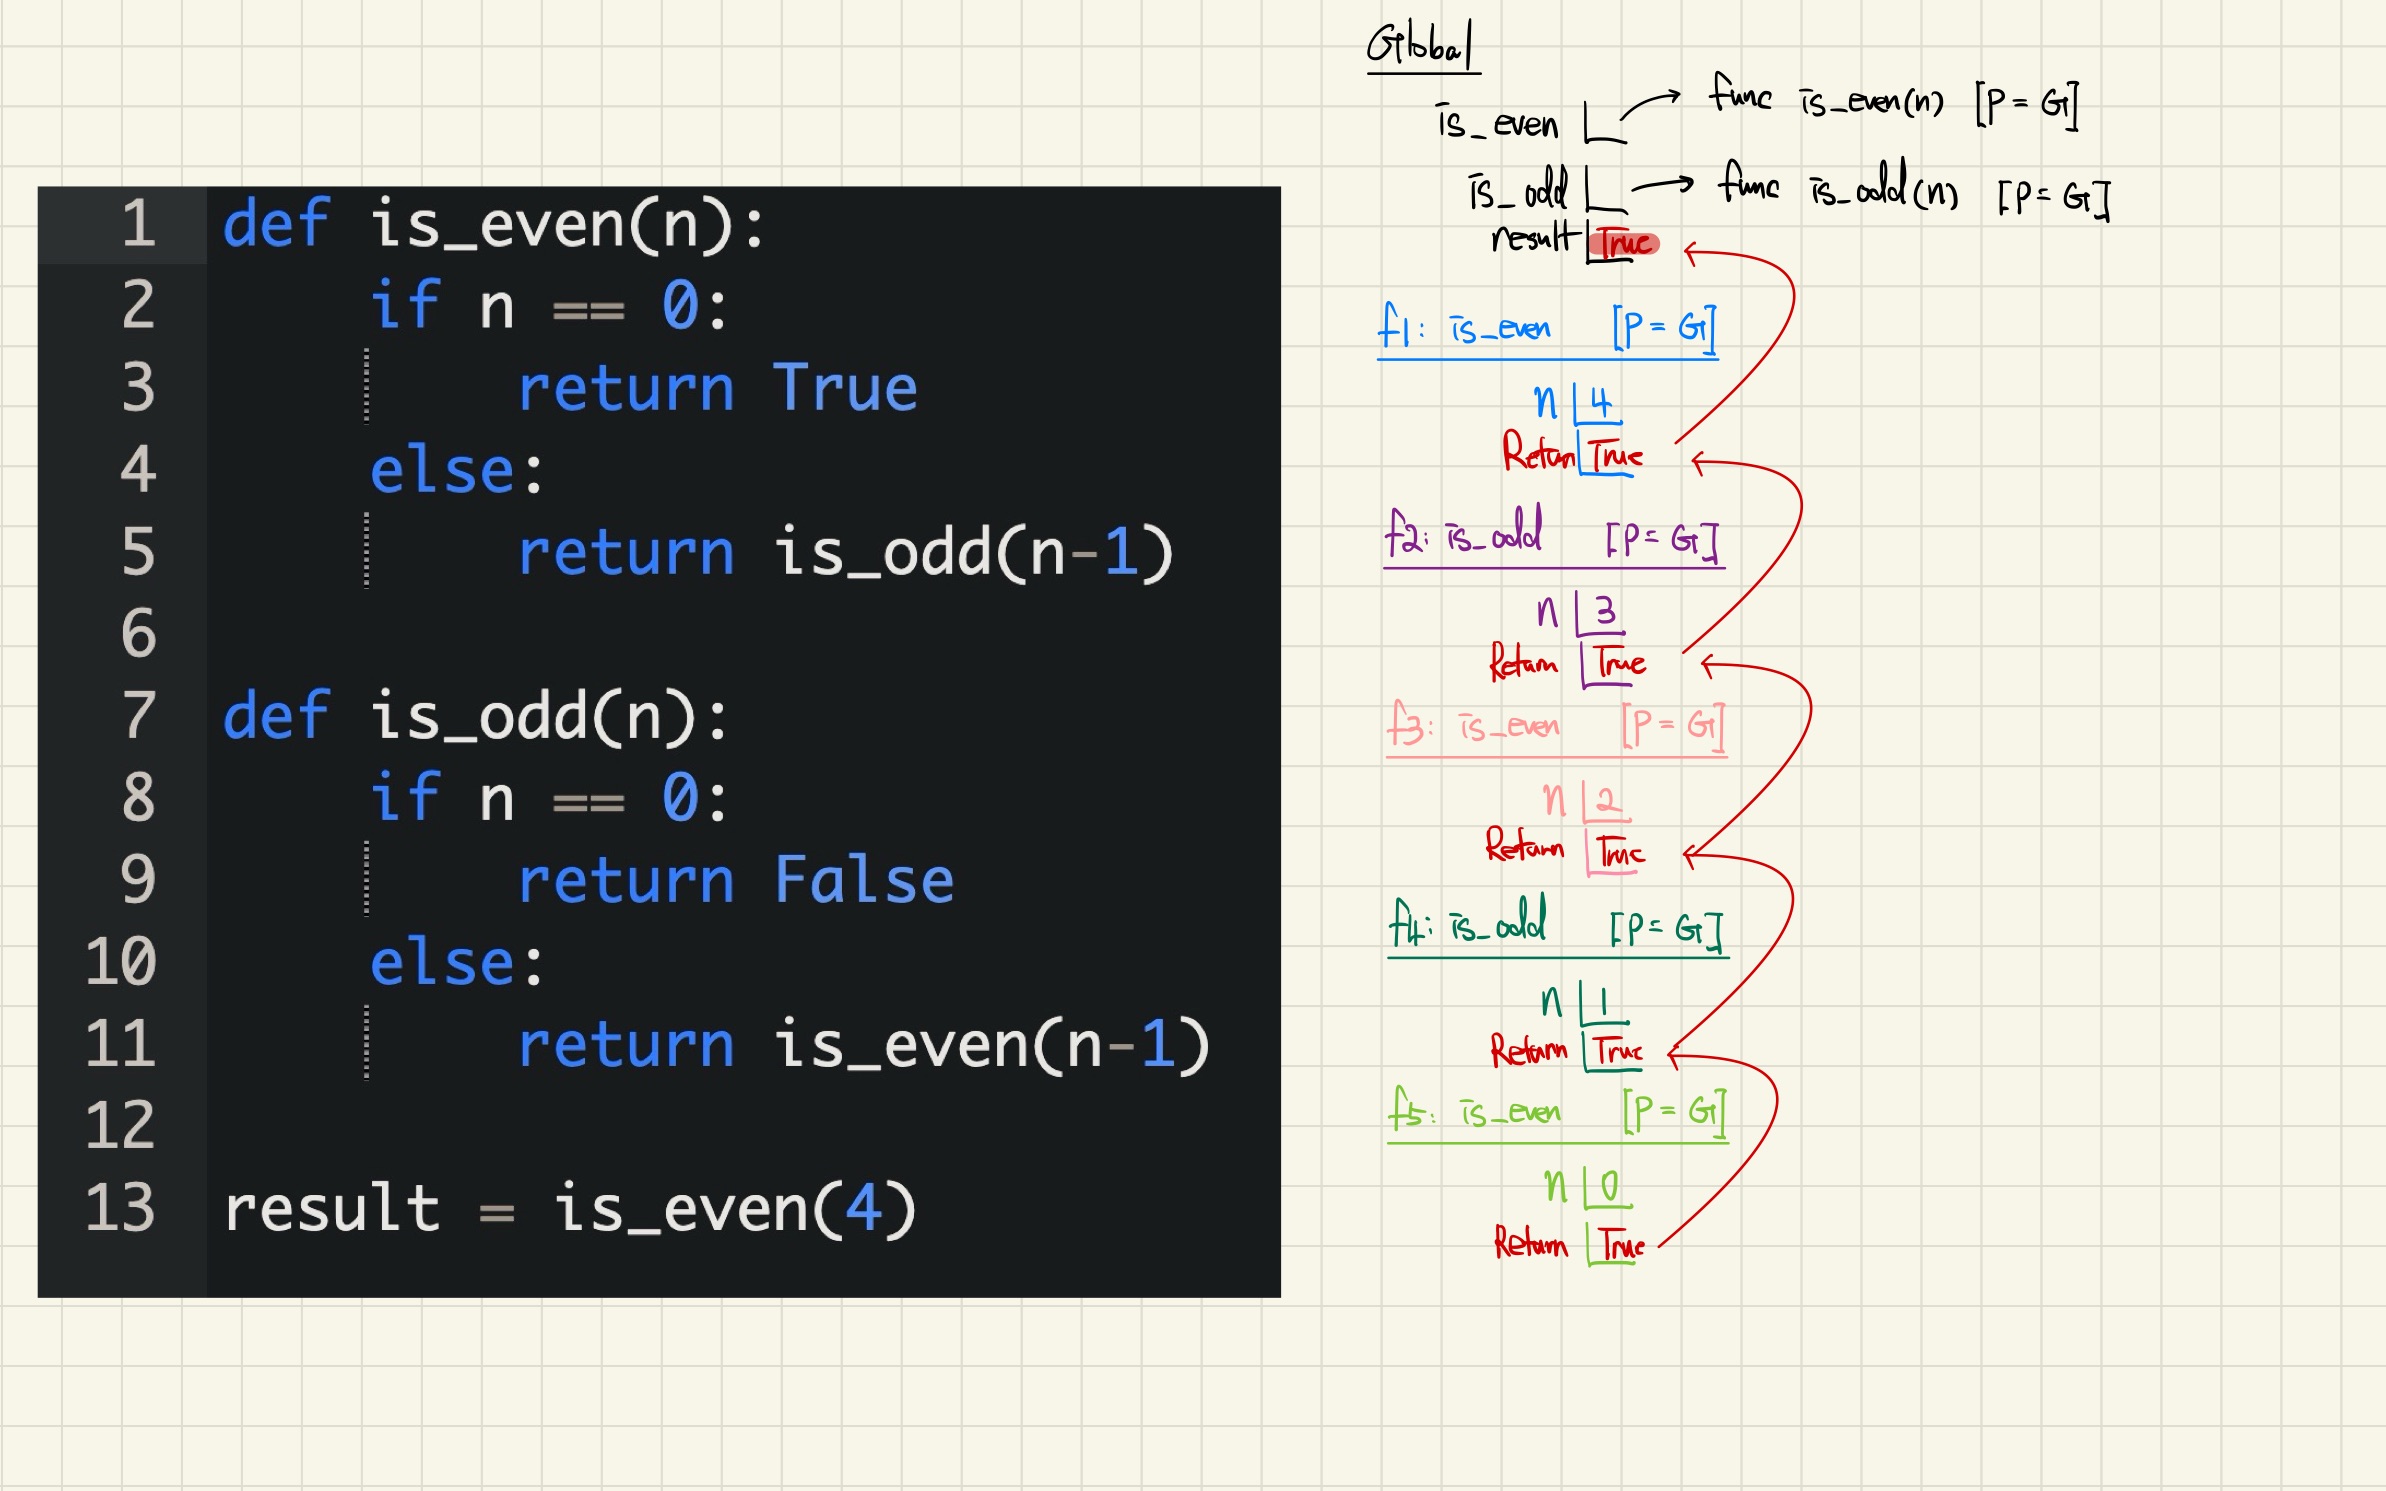 1 def is_even(n):
2 if n == 0:
3 return True
4 else:
5 return is_odd(n-1)
6
7 def is_odd(n):
8 if n == 0:
9 return False
10 else:
11 return is_even(n-1)
12
13 result = is_even(4)
Global
is_even func is_even(n) [P = G]
is_odd func is_odd(n) [P = G]
result True
f1: is_even [P = G]
n 4
Return True
f2: is_odd [P = G]
n 3
Return True
f3: is_even [P = G]
n 2
Return True
f4: is_odd [P = G]
n 1
Return True
f5: is_even [P = G]
n 0
Return True